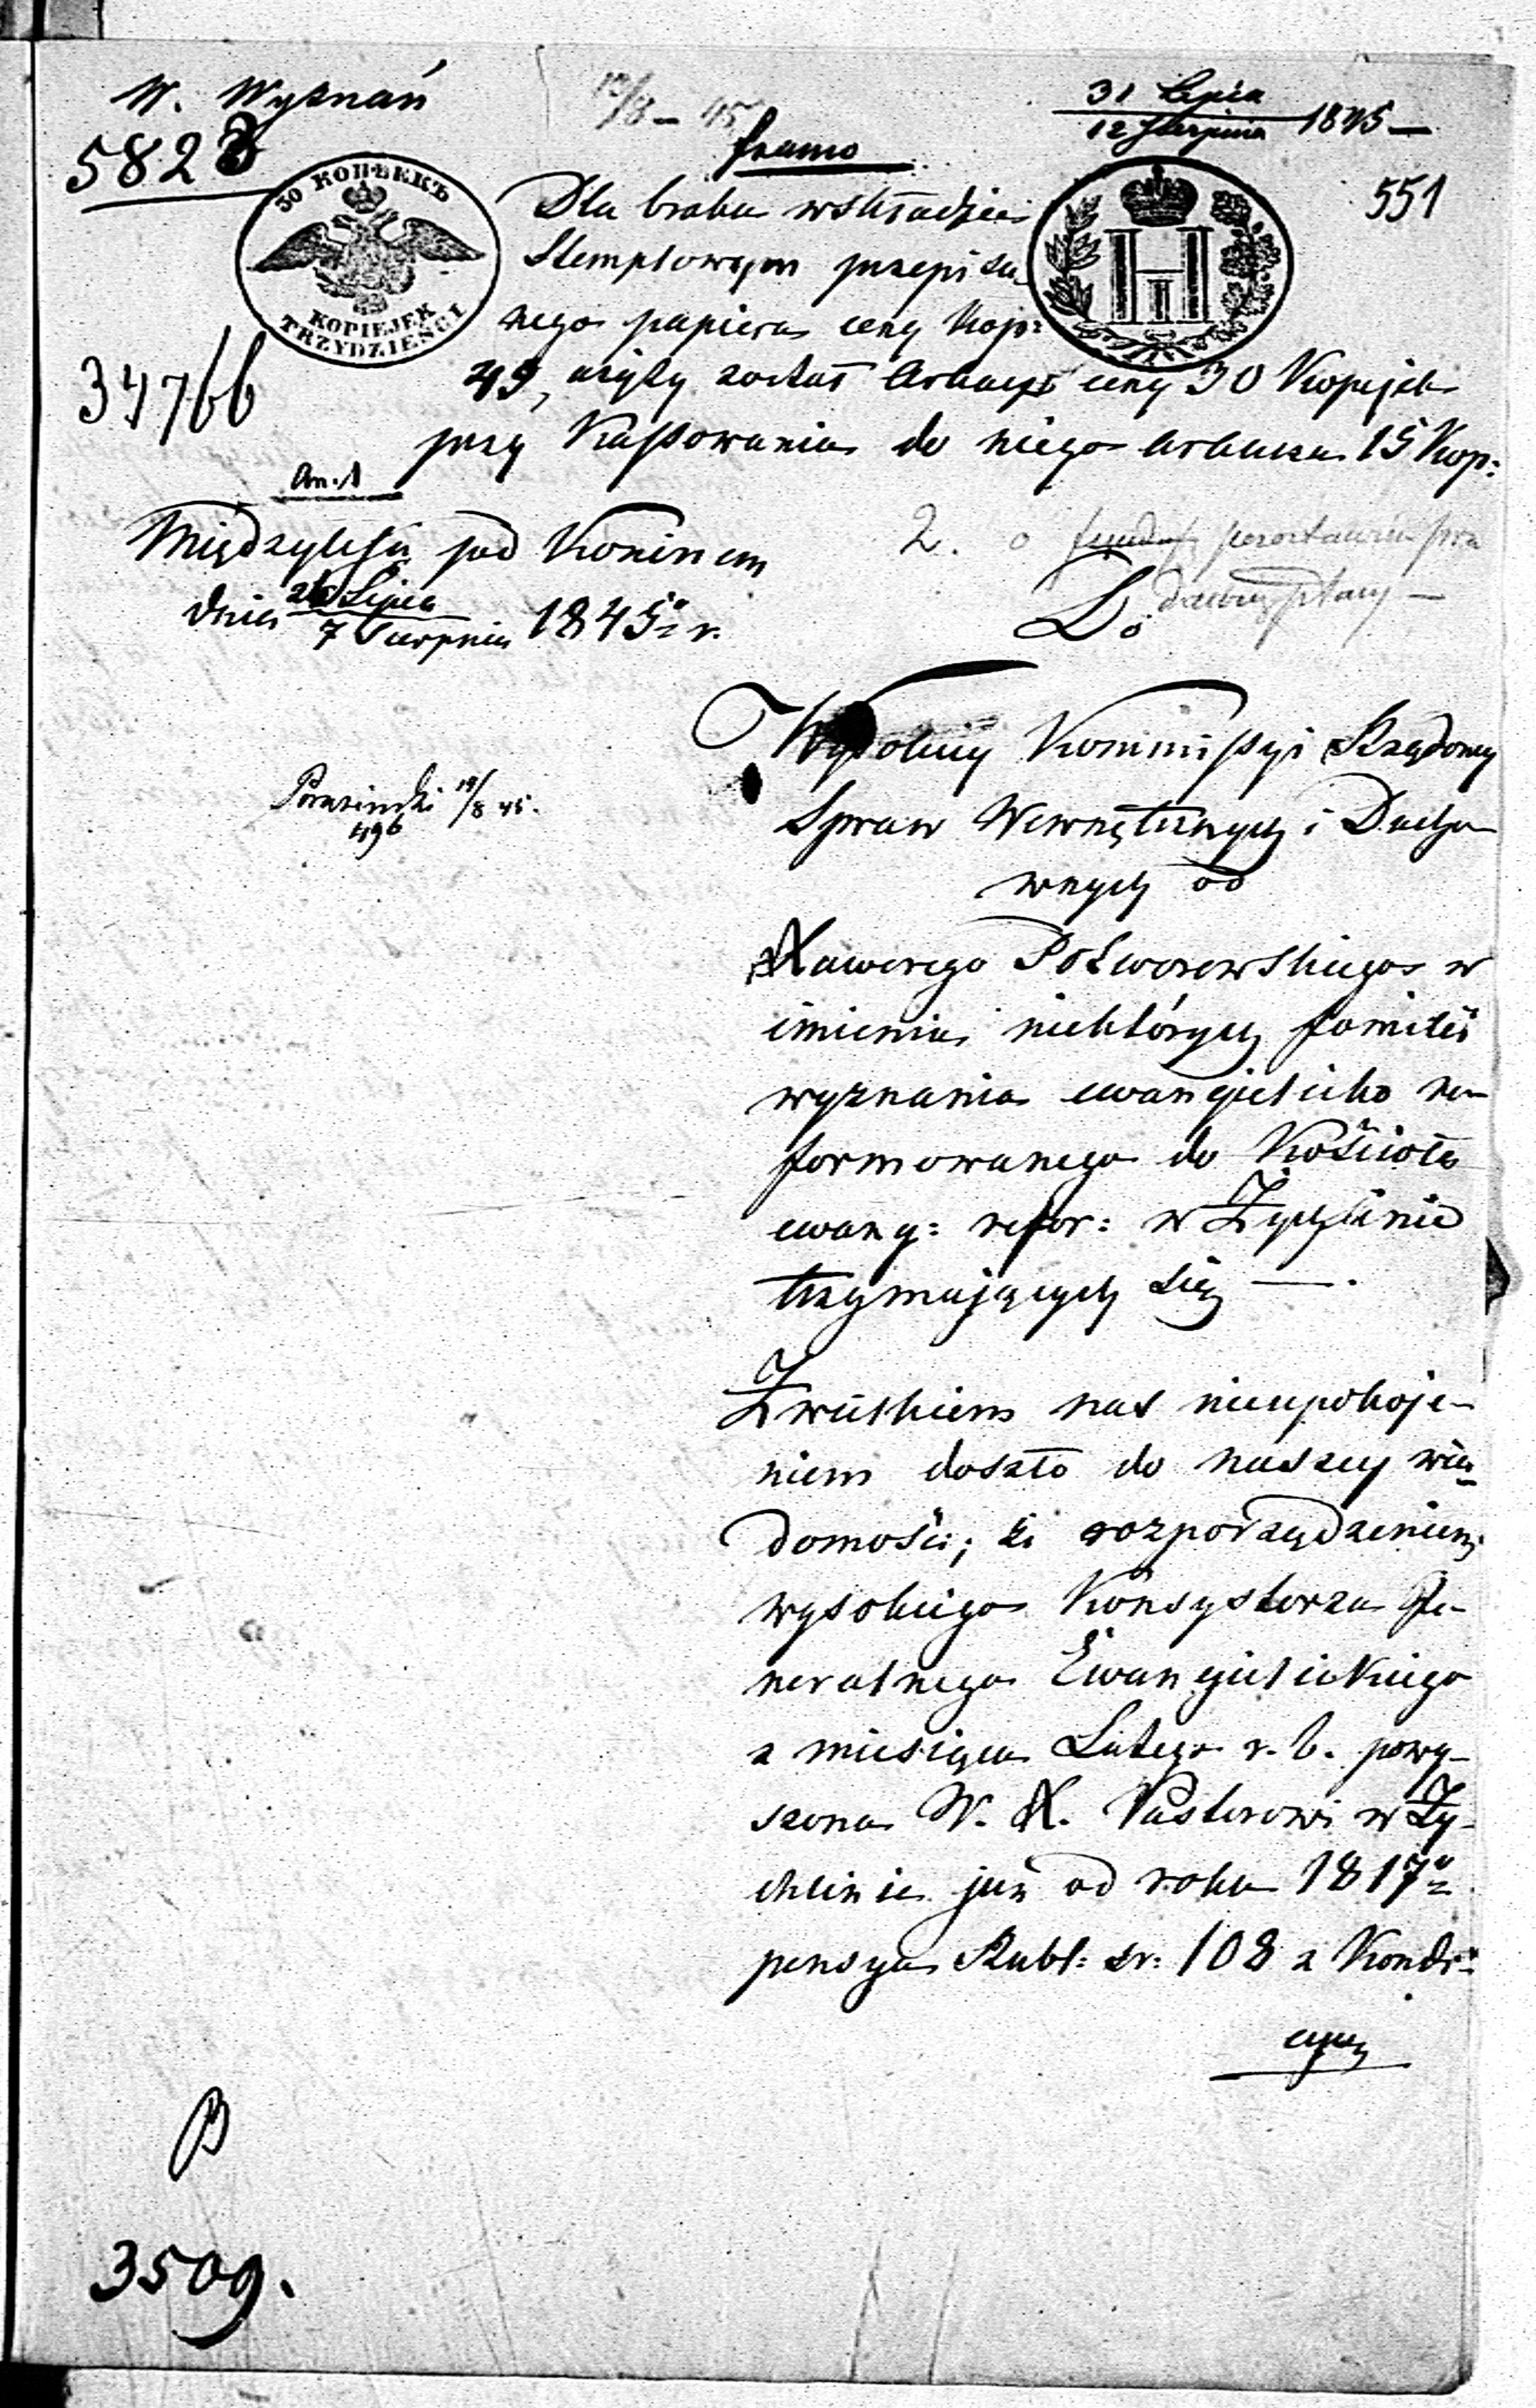 W. Wyznań
5823
12/8 – 45
31 Lipca
12 Sierpnia 1845 –
franco
551
30 КОПѢЕКЪ
KOPIEJEK
TRZYDZIEŚCI
Dla braku w składzie
Stemplowym przepisa-
nego papieru ceny Kop:
45, użyty został Arkusz ceny 30 Kopiejek
przy Kassowaniu do niego Arkusza 15 Kop:
34766
An. 1
Międzylesie pod Koninem
dnia 26 Lipca
7 Sierpnia 1845 r.
2. o
Do
Wysokiey Kommissyi Rządowey
Spraw Wewnętrznych i Ducho-
wnych od
Xawerego Potworowskiego w
imieniu niektórych familii
wyznania ewangielicko re-
formowanego do Kościoła
ewang: refor: w Żychlinie
trzymających się —.
19/8 45.
496
Z wielkiem nas nieupokoje-
niem doszło do naszey wia-
domości; że rozporządzeniem
wysokiego Konsystorza Je-
neralnego Ewangielickiego
z miesiąca Lutego r. b. powy-
szona W. X. Pastorowi w Ży-
chlinie już od roku 1817
pensya Rubl: sr: 108 z Kondi-
cyą
B
3509.